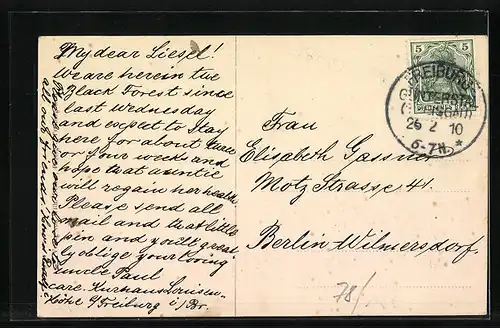 My dear Liesel!
We are here in the
Black Forest since
last Wednesday
and expect to stay
here for about three
or four weeks and
hope that auntie
will regain her health
Please send all
mail and that little
pin and you'll great-
ly oblige your loving
uncle Paul
care. Kurhaus Louisen-
Höhe b/Freiburg i/Br.
Please give our love to
all our friends
5 5
FREIBURG
GÜNTERSTAL
(BREISGAU)
26 2 10
6-7N.
*
Frau
Elisabeth Gassner
Motz Strasse 41.
Berlin Wilmersdorf.
78/